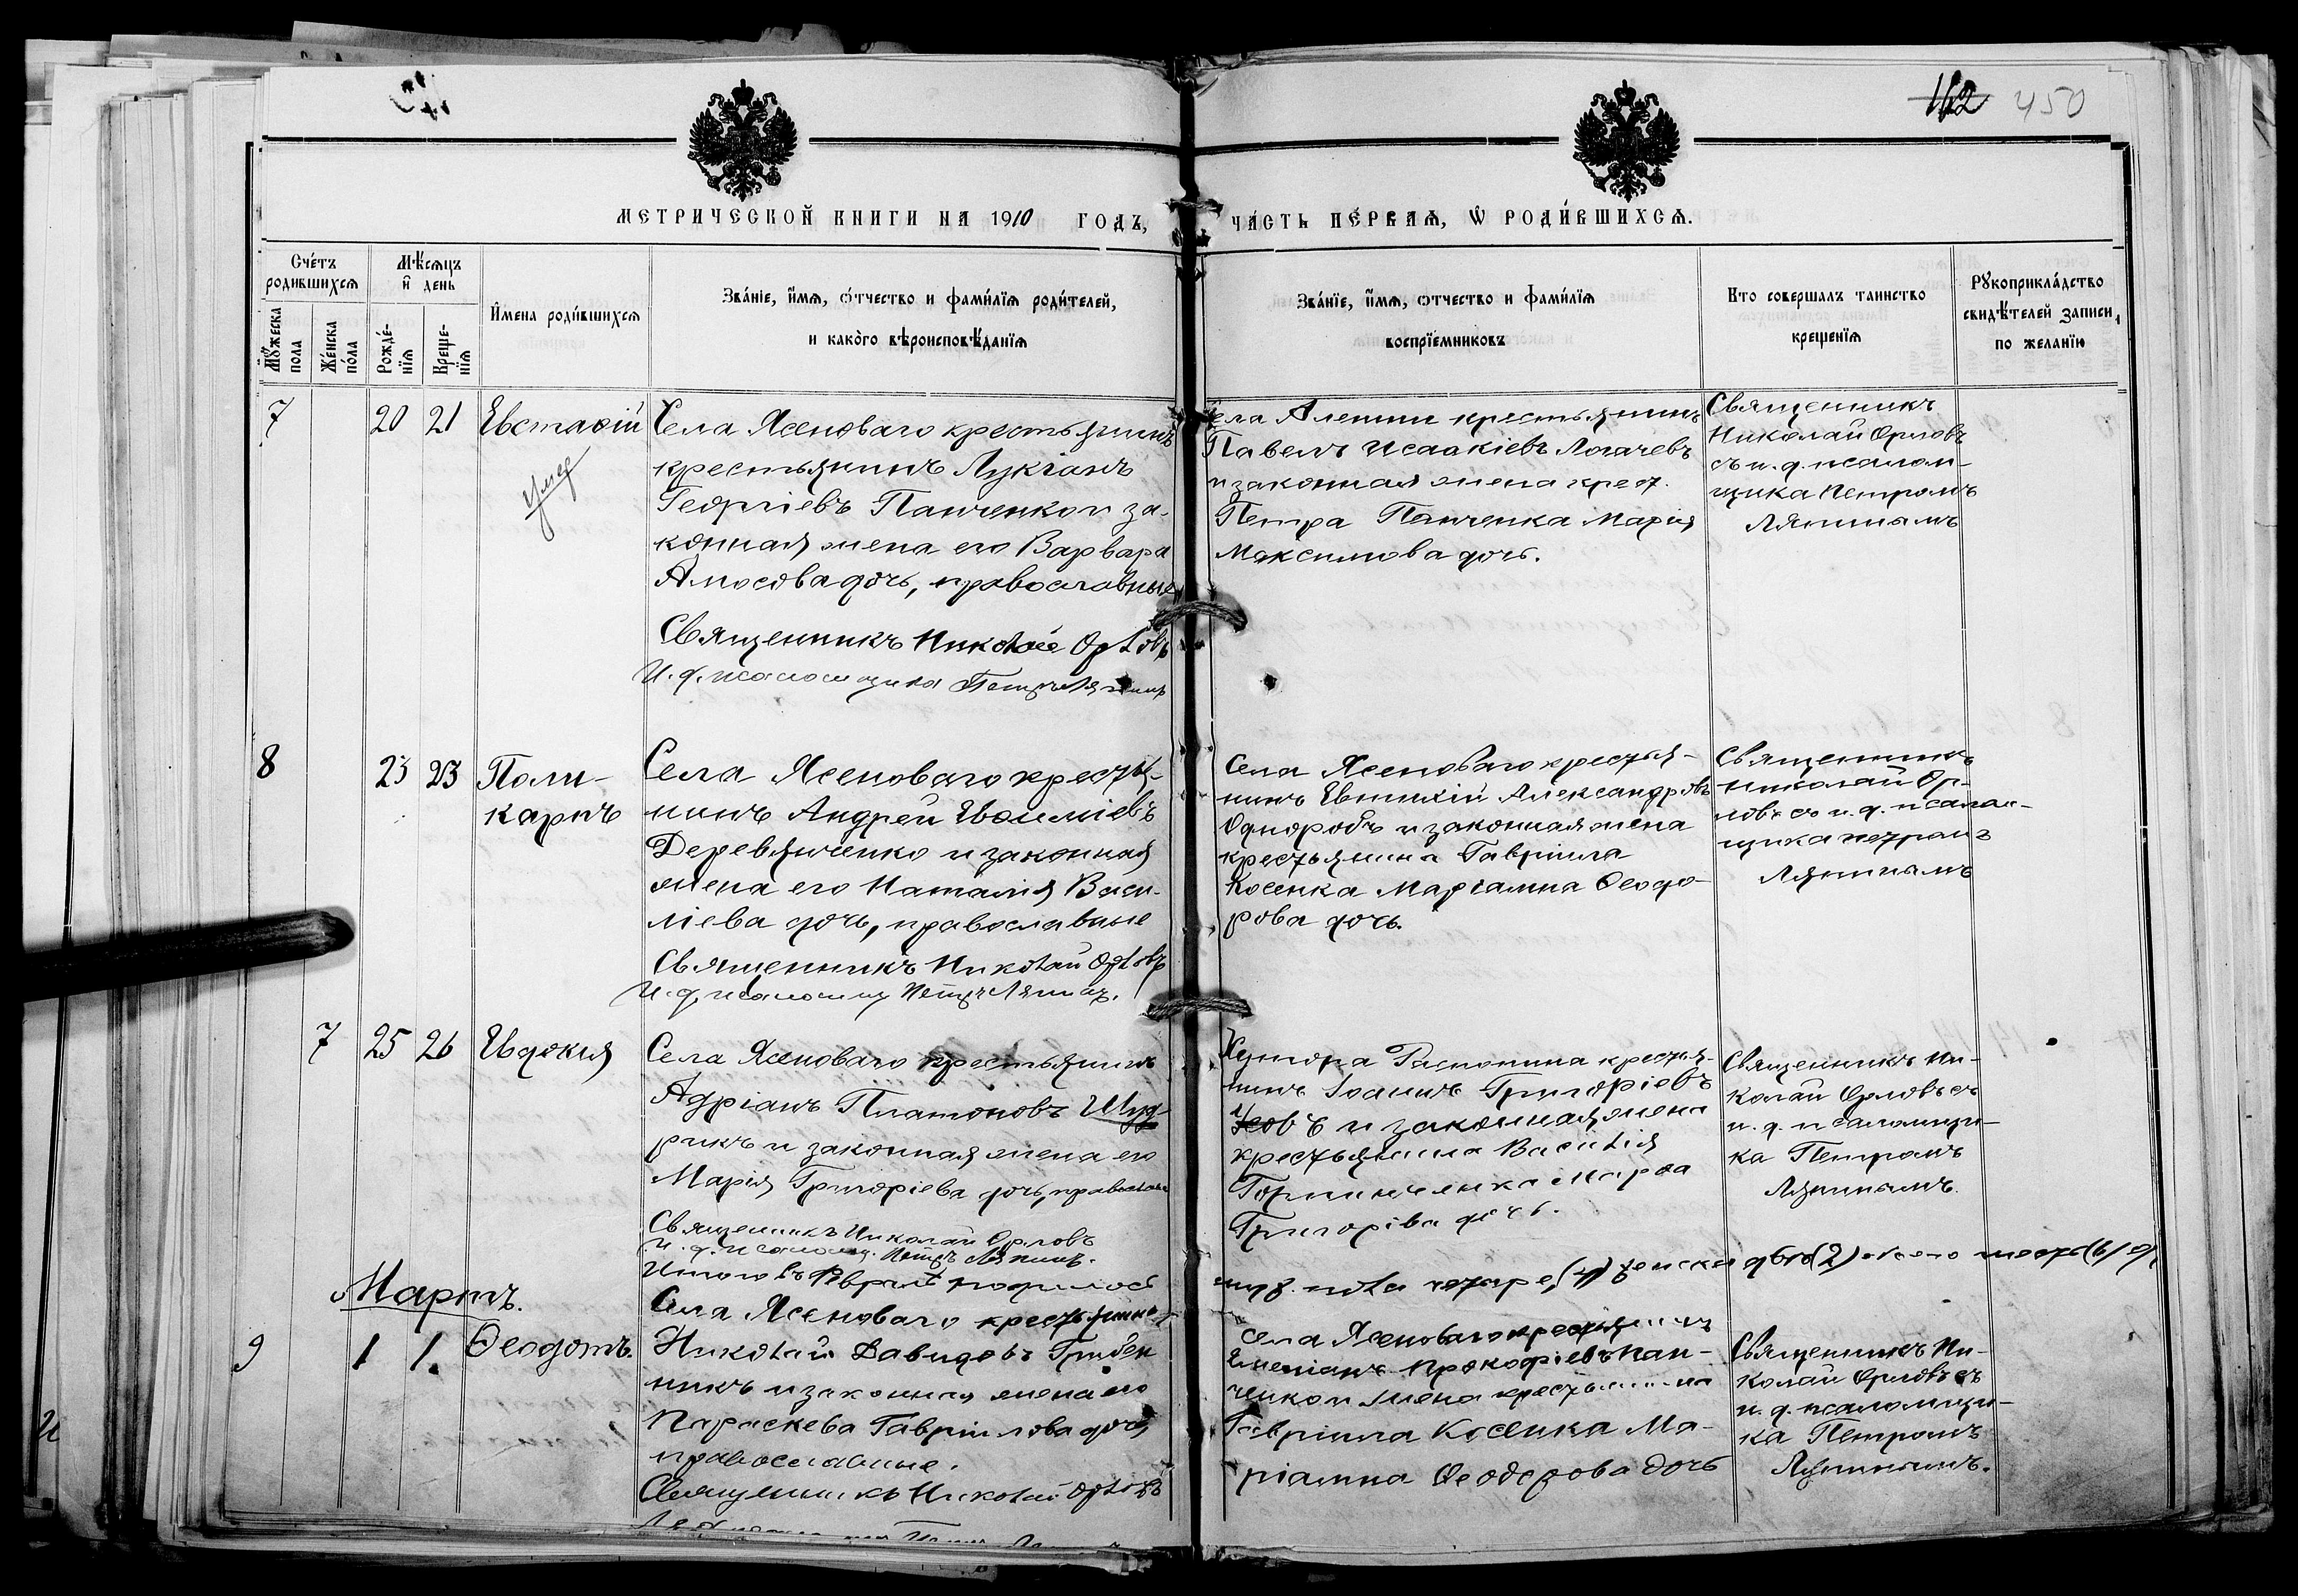 162 450
МЕТРИЧЕСКОЙ КНИГИ НА 1910 ГОДЪ,
ЧА́СТЬ ПЕ́РВАЯ, Ѡ҆ РОДИ́ВШИХСЯ.
Сче́тъ родившихся
Мѣ́сяцъ и҆ день
И҆мена роди́вшихся
Зва́нїе, и҆́мя, ѻ́тчество и фами́лїя роди́телей,
и како́го вѣроисповѣ́данїя
Зва́нїе, и҆́мя, ѻтчество и фами́лїя
воспрїемниковъ
Кто совершалъ таинство
крещенїя
Рꙋкоприкла́дство
свидѣ́телей записи
по желанїю
Мꙋжеска пола
Же́нска по́ла
Рожде́нїя
Крещенїя
7 20 21 Евстафій
умер
Села Ясеноваго крестьянинъ
крестьянинъ Лукіанъ
Георгіевъ Панченко и за-
конная жена его Варвара
Амосова дочь, православные
Священникъ Николай Орловъ
И. д. псаломщика Петръ Ляпинъ
Села Алешни крестьянинъ
Павелъ Исаакіевъ Логачевъ
и законная жена крест.
Петра Панченка Марія
Максимова дочь.
Священникъ
Николай Орловъ
съ и. д. псалом-
щика Петромъ
Ляпинымъ
8 23 23 Поли-
карпъ
Села Ясеноваго крестья-
нинъ Андрей
Деревянченко и законная
жена его Наталія Васи-
ліева дочь, православные
Священникъ Николай Орловъ
И. д. псаломщ Петръ Ляпинъ.
Села Ясеноваго крестья-
нинъ Евтихій Александровъ
Однородъ и законная жена
крестьянина Гавріила
Косенка Маріамна Ѳеодо-
рова дочь.
Священникъ
Николай Ор-
ловъ съ и. д. псалом-
щика Петромъ
Ляпинымъ
7 25 26 Евдокія
Села Ясеноваго крестьянинъ
Адріанъ Платоновъ Шуд-
рикъ и законная жена его
Марія Григоріева дочь, православн
Священникъ Николай Орловъ
и. д. псаломщ. Петръ Ляпинъ.
Хутора крестья-
нинъ Іоаннъ Григоріевъ
и законная жена
крестьянина Василія
Марѳа
Григоріва дочь.
Священникъ Ни-
колай Орловъ съ
и. д. псаломщи-
ка Петромъ
Ляпинымъ.
Итого въ Февралѣ родилось
муж. пола четыре (4) женска двѣ (2) всего шесть (6)
Мартъ.
9 1 1. Ѳеодотъ.
Села Ясеноваго крестьянинъ
Николай Давидовъ Гребен
никъ и законная жена его
Параскева Гавріилова дочь,
православные.
Священникъ Николай Орловъ
Села Ясеноваго крестьянинъ
Емеліанъ Прокофіевъ Пан-
ченко и жена крестьянина
Гавріила Косенка Ма-
ріамна Ѳеодорова дочь
Священникъ Ни-
колай Орловъ съ
и. д. псаломщи-
ка Петромъ
Ляпинымъ.